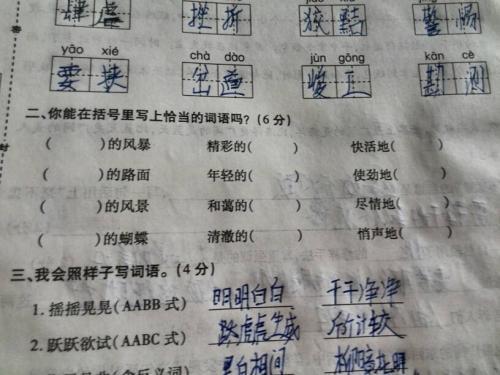 挫折 狡黠
yāo xié chà dào jùn gōng kān cè
要挟 岔道 竣工 勘测
二、你能在括号里写上恰当的词语吗?(6分)
( )的风暴 精彩的( ) 快活地( )
( )的路面 年轻的( ) 使劲地( )
( )的风景 和蔼的( ) 尽情地( )
( )的蝴蝶 清澈的( ) 悄声地( )
三、我会照样子写词语。(4分)
1.摇摇晃晃(AABB式) 明明白白 干干净净
2.跃跃欲试(AABC式) 虎虎生威 斤斤计较
黑白相间 柳暗花明